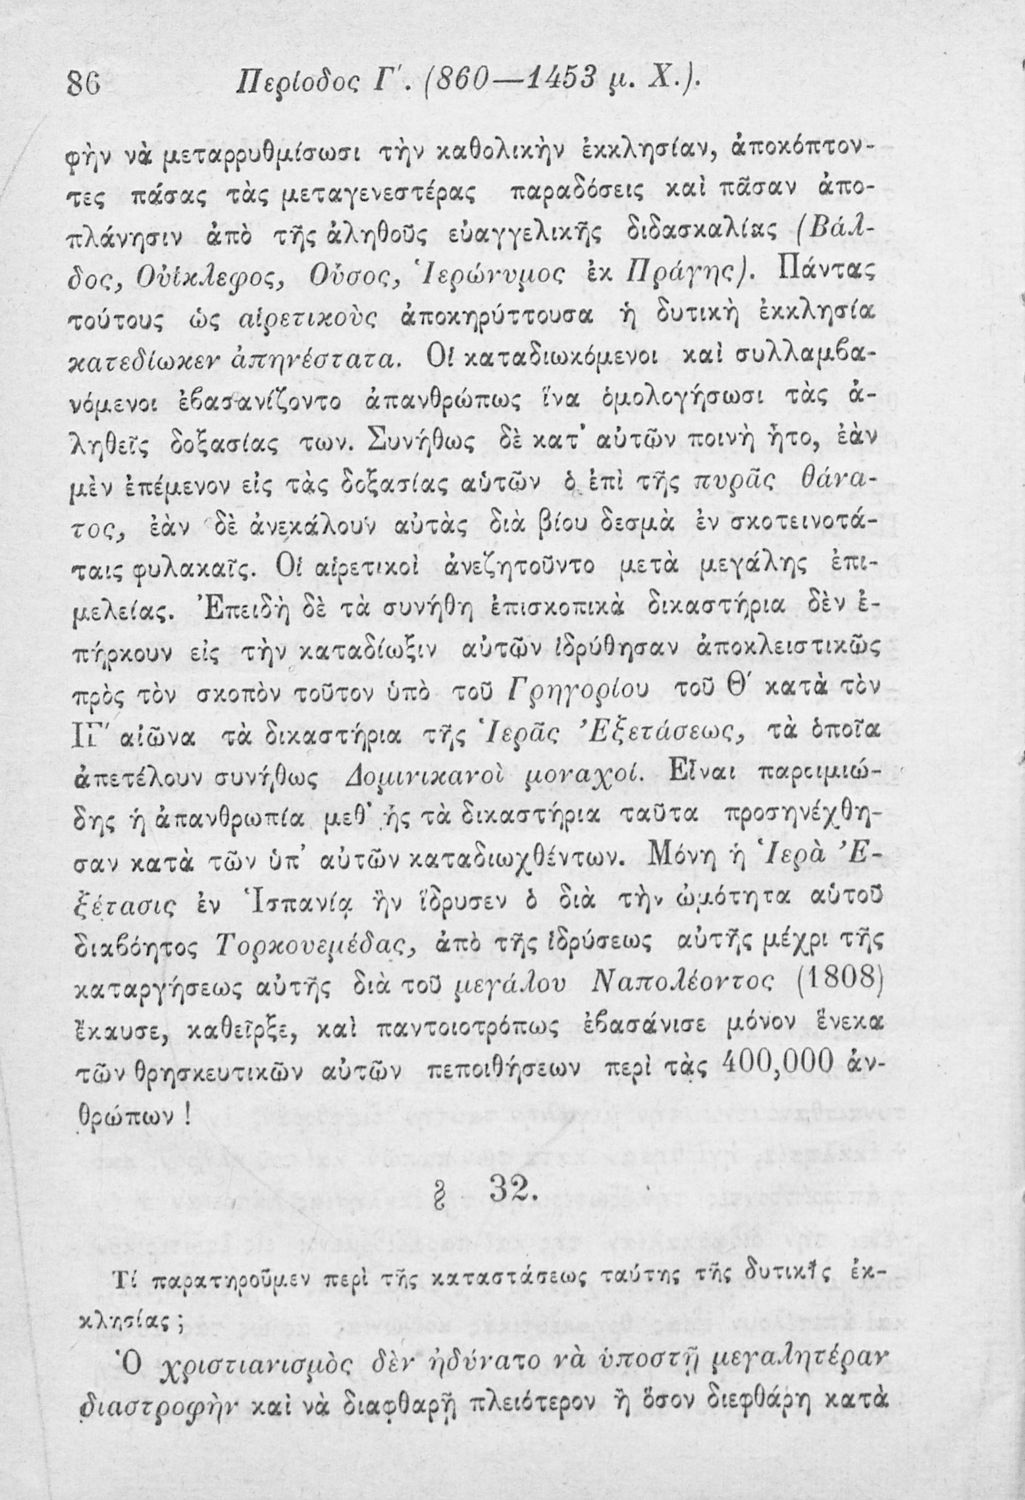 86 Περίοδος Γ΄. (860—1453 μ. Χ.).
φὴν νὰ μεταρρυθμίσωσι τὴν καθολικὴν ἐκκλησίαν, ἀποκόπτον-
τες πάσας τὰς μεταγενεστέρας παραδόσεις καὶ πᾶσαν ἀπο-
πλάνησιν ἀπὸ τῆς ἀληθοῦς εὐαγγελικῆς διδασκαλίας (Βάλ-
δος, Οὐΐκλεφος, Οὖσος, Ἱερώνυμος ἐκ Πράγης). Πάντας
τούτους ὡς αἱρετικοὺς ἀποκηρύττουσα ἡ δυτικὴ ἐκκλησία
κατεδίωκεν ἀπηνέστατα. Οἱ καταδιωκόμενοι καὶ συλλαμβα-
νόμενοι ἐβασανίζοντο ἀπανθρώπως ἵνα ὁμολογήσωσι τὰς ἀ-
ληθεῖς δοξασίας των. Συνήθως δὲ κατ' αὐτῶν ποινὴ ἦτο, ἐὰν
μὲν ἐπέμενον εἰς τὰς δοξασίας αὑτῶν ὁ ἐπὶ τῆς πυρᾶς θάνα-
τος, ἐὰν δὲ ἀνεκάλουν αὐτὰς διὰ βίου δεσμὰ ἐν σκοτεινοτά-
ταις φυλακαῖς. Οἱ αἱρετικοὶ ἀνεζητοῦντο μετὰ μεγάλης ἐπι-
μελείας. Ἐπειδὴ δὲ τὰ συνήθη ἐπισκοπικὰ δικαστήρια δὲν ἐ-
πήρκουν εἰς τὴν καταδίωξιν αὐτῶν ἱδρύθησαν ἀποκλειστικῶς
πρὸς τὸν σκοπὸν τοῦτον ὑπὸ τοῦ Γρηγορίου τοῦ Θ΄ κατὰ τὸν
ΙΓ΄ αἰῶνα τὰ δικαστήρια τῆς Ἱερᾶς Ἐξετάσεως, τὰ ὁποῖα
ἀπετέλουν συνήθως Δομινικανοὶ μοναχοί. Εἶναι παροιμιώ-
δης ἡ ἀπανθρωπία μεθ' ἧς τὰ δικαστήρια ταῦτα προσηνέχθη-
σαν κατὰ τῶν ὑπ' αὐτῶν καταδιωχθέντων. Μόνη ἡ Ἱερὰ Ἐ-
ξέτασις ἐν Ἱσπανίᾳ ἣν ἵδρυσεν ὁ διὰ τὴν ὠμότητα αὑτοῦ
διαβόητος Τορκουεμέδας, ἀπὸ τῆς ἱδρύσεως αὐτῆς μέχρι τῆς
καταργήσεως αὐτῆς διὰ τοῦ μεγάλου Ναπολέοντος (1808)
ἔκαυσε, καθεῖρξε, καὶ παντοιοτρόπως ἐβασάνισε μόνον ἕνεκα
τῶν θρησκευτικῶν αὐτῶν πεποιθήσεων περὶ τὰς 400,000 ἀν-
θρώπων !
§ 32.
Τί παρατηροῦμεν περὶ τῆς καταστάσεως ταύτης τῆς δυτικῆς ἐκ-
κλησίας ;
Ὁ χριστιανισμὸς δὲν ἠδύνατο νὰ ὑποστῇ μεγαλητέραν
διαστροφὴν καὶ νὰ διαφθαρῇ πλειότερον ἢ ὅσον διεφθάρη κατὰ